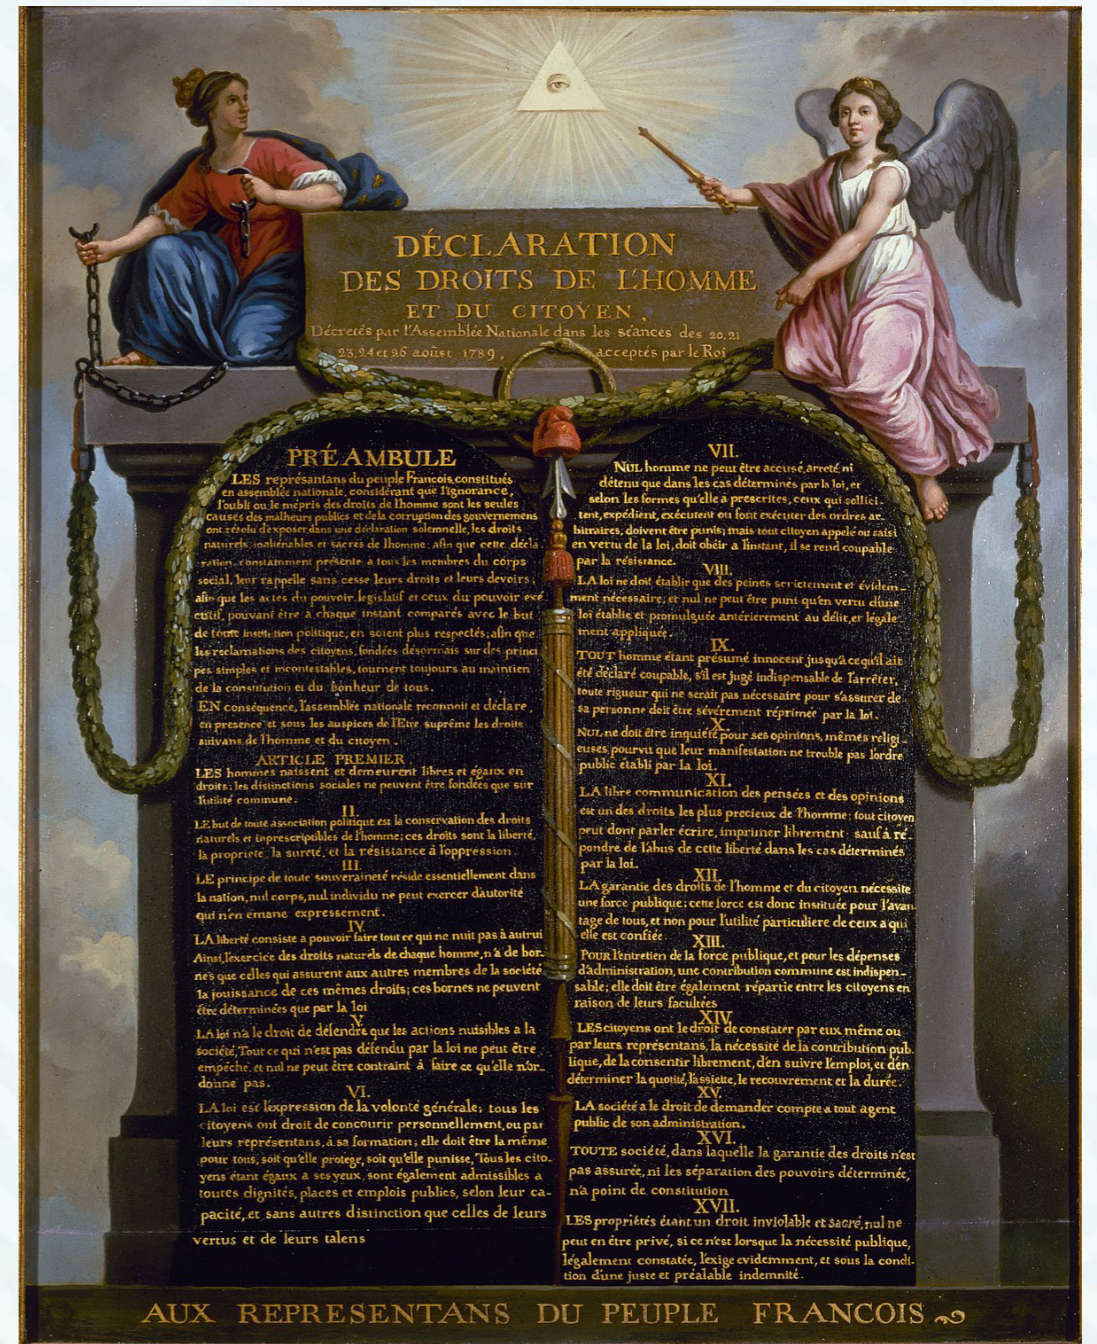 DÉCLARATION
DES DROITS DE L'HOMME
ET DU CITOYEN,
Décretés par l'Assemblée Nationale dans les séances des 20, 21
23, 24 et 26 aoûst 1789, acceptés par le Roi
PRÉAMBULE
LES représantans du peuple Francois, constitués
en assemblée nationale, considérant que l'ignorance,
l'oubli ou le mépris des droits de l'homme sont les seules
causes des malheurs publics et de la corruption des gouvernemens
ont résolu d'exposer dans une déclaration solemnelle, les droits
naturels, inaliénables et sacrés de l'homme: afin que cette décla
ration, constamment présente a tous les membres du corps
social, leur rappelle sans cesse leurs droits et leurs devoirs,
afin que les actes du pouvoir legislatif et ceux du pouvoir exé
cutif, pouvant être à chaque instant comparés avec le but
de toute institution politique, en soient plus respectés; afin que
les reclamations des citoyens, fondées désormais sur des princi
pes simples et incontestables, tournent toujours au maintien
de la constitution et du bonheur de tous.
EN conséquence, l'assemblée nationale reconnoit et déclare,
en presence et sous les auspices de l'Etre suprême les droits
suivans de l'homme et du citoyen.
ARTICLE PREMIER
LES hommes naissent et demeurent libres et égaux en
droits; les distinctions sociales ne peuvent être fondées que sur
l'utilité commune.
II.
LE but de toute association politique est la conservation des droits
naturels et inprescriptibles de l'homme; ces droits sont la liberté,
la propriete, la sureté, et la résistance à l'oppression.
III.
LE principe de toute souveraineté réside essentiellement dans
la nation, nul corps, nul individu ne peut exercer d'autorité
qui n'en émane expressement.
IV.
LA liberté consiste a pouvoir faire tout ce qui ne nuit pas à autrui
Ainsi, l'exercice des droits naturels de chaque homme, n'a de bor-
nes que celles qui assurent aux autres membres de la société
la jouissance de ces mêmes droits; ces bornes ne peuvent
être déterminées que par la loi
V.
LA loi n'a le droit de défendre que les actions nuisibles a la
société, Tout ce qui n'est pas défendu par la loi ne peut être
empêché, et nul ne peut être contraint à faire ce qu'elle n'or-
donne pas.
VI.
LA loi est l'expression de la volonté générale; tous les
citoyens ont droit de concourir personnellement, ou par
leurs représentans, à sa formation; elle doit être la même
pour tous, soit qu'elle protege, soit qu'elle punisse, Tous les cito-
yens étant égaux a ses yeux, sont également admissibles a
toutes dignités, places et emplois publics, selon leur ca-
pacité, et sans autres distinction que celles de leurs
vertus et de leurs talens
VII.
NUL homme ne peut être accusé, arreté, ni
détenu que dans les cas déterminés par la loi, et
selon les formes qu'elle à prescrites, ceux qui sollici-
tent, expédient, exécutent ou font exécuter des ordres ar-
bitraires, doivent être punis; mais tout citoyen appelé ou saisi
en vertu de la loi, doit obéir a l'instant, il se rend coupable
par la résistance.
VIII.
LA loi ne doit établir que des peines strictement et évidem-
ment nécessaire, et nul ne peut être puni qu'en vertu d'une
loi établie et promulguée antérierement au délit, et légale-
ment appliquée.
IX.
TOUT homme étant présumé innocent jusqu'a ce qu'il ait
été déclaré coupable, s'il est jugé indispensable de l'arrêter,
toute rigueur qui ne serait pas nécessaire pour s'assurer de
sa personne doit être sévèrement réprimée par la loi.
X.
NUL ne doit être inquiété pour ses opinions, mêmes religi
euses, pourvu que leur manifestation ne trouble pas l'ordre
public établi par la loi.
XI.
LA libre communication des pensées et des opinions
est un des droits les plus precieux de l'homme; tout citoyen
peut dont parler écrire, imprimer librement: sauf à ré
pondre de l'abus de cette liberté dans les cas déterminés
par la loi.
XII.
LA garantie des droits de l'homme et du citoyen nécessite
une force publique; cette force est donc instituée pour l'avan-
tage de tous, et non pour l'utilité particuliere de ceux a qui
elle est confiée.
XIII.
POUR l'entretien de la force publique, et pour les dépenses
d'administration, une contribution commune est indispen-
sable; elle doit être également répartie entre les citoyens en
raison de leurs facultées
XIV.
LES citoyens ont le droit de constater par eux même ou
par leurs représentans, la nécessité de la contribution pub-
lique, de la consentir librement, d'en suivre l'emploi, et d'en
déterminer la quotité, l'assiette, le recouvrement et la durée.
XV.
LA société a le droit de demander compte a tout agent
public de son administration.
XVI.
TOUTE société, dans laquelle la garantie des droits n'est
pas assurée, ni les séparation des pouvoirs déterminée,
n'a point de constitution
XVII.
LES propriétés étant un droit inviolable et sacré, nul ne
peut en être privé, si ce n'est lorsque la nécessité publique,
légalement constatée, l'exige evidemment, et sous la condi-
tion d'une juste et préalable indemnité.
AUX REPRESENTANS DU PEUPLE FRANCOIS